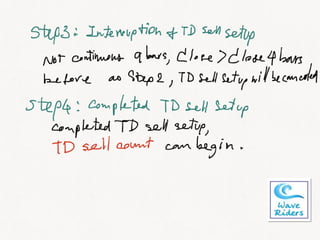 Step3: Interruption of TD sell setup
Not continuous 9 bars, Close > Close 4 bars
before as Step 2, TD sell setup will be canceled
Step4: Completed TD sell setup
completed TD sell setup,
TD sell count can begin.
Wave
Riders